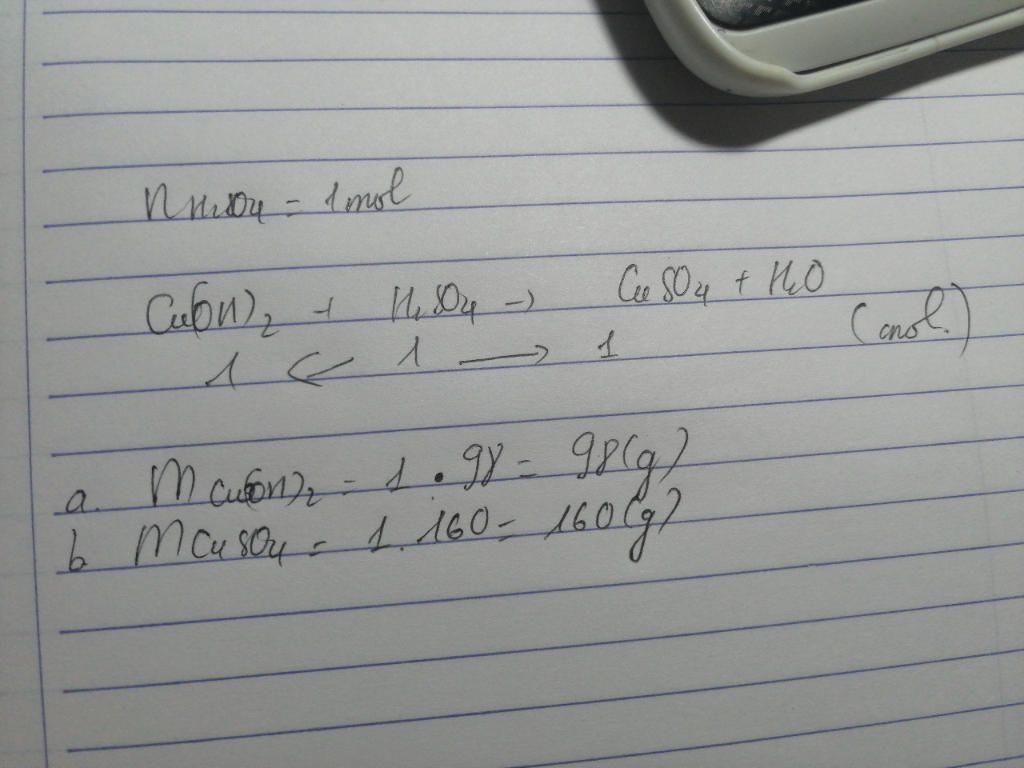 nH₂SO₄ = 1mol
Cu(OH)₂ + H₂SO₄ → CuSO₄ + H₂O
1 ← 1 → 1 (mol.)
a. mCu(OH)₂ = 1 . 98 = 98(g)
b mCuSO₄ = 1.160 = 160(g)